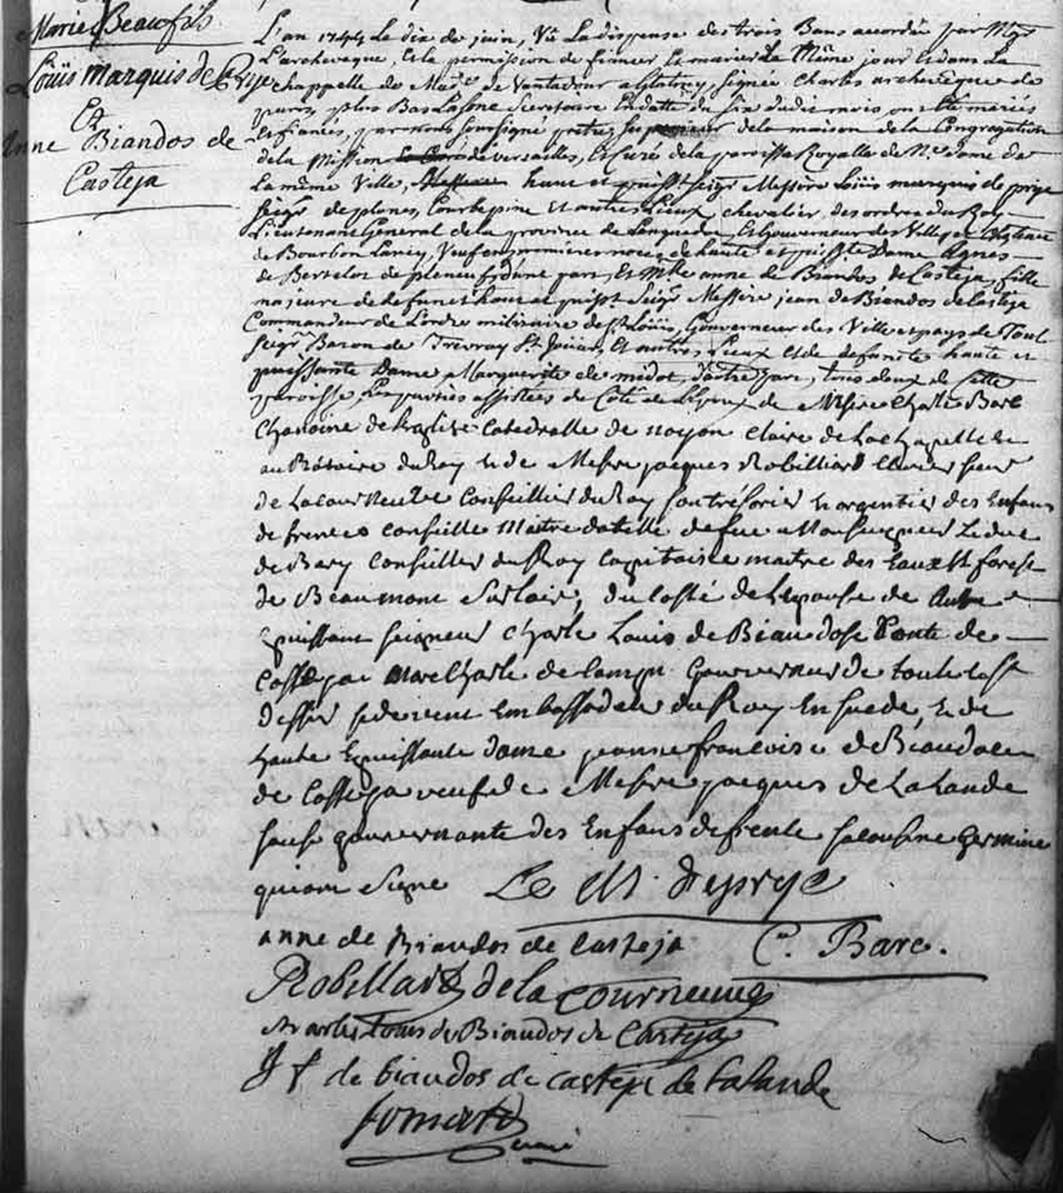 Marie Beaufils
Loüis Marquis de Prye
Et
Anne Biandos de
Casteja
L'an 1744 Le dix de juin, Vû La dispense des trois Bans accordée par Mgr
L'archeveque, Et la permission de fiancer Et marier Le Même jour Et dans La
chappelle de Made de Vantadour a Glatiny, signée Charles archevêque de
paris, plus Bas La Sone Secretaire En datte du Six dudit mois ont Eté mariés
Et fiancés, par nous soussigné prêtre, superieur de la maison de la Congregation
de la Mission de versailles, Et Curé de la paroisse Royalle de N.e dame de
La même Ville, haut et puisst seigr Messire Loüis marquis de prye
seigr de planes, Courbepine Et autres Lieux, chevalier des ordres du Roy
Lieutenant General de la province de Languedoc, Et Gouverneur des Ville et Chateau
de Bourbon Lancy, Veuf en premieres noces de haute et puisste Dame Agnes
de Bertelot de pleneuf d'une part, Et Mlle anne de Biandos de Casteja, fille
majeure de defunct haut et puisst Seigr Messire jean de Biandos de Casteja
Commandeur de L'ordre militaire de St Loüis, Gouverneur des Ville et pays de Toul
seigr Baron de Trevray St Joüair, Et autres Lieux et de defuncte haute et
puissante Dame Marguerite de midot, d'autre part, tous deux de cette
paroisse, Les parties assistées du Coté de L'Epoux de Messire Charle Bare
Chanoine de l'Eglise Catedralle de noyon Claire de La chapelle et
au Rotaire du Roy et de Messire jacques Robilliard sieur
de La cour Neuve Conseillier du Roy tresorier et argentier des Enfans
de frence conseille Maitre dotelle de feu Monseigneur Le duc
de Bery Conseiller du Roy Capitaine maitre des Eaux Et forest
de Beaumont Sur Loir, du costé de L'epouse de
Epuissant seigneur Charle Louis de Biaudose Conte de
Casteja Marechalle de camp Gouverneur de toule
embassadeur du Roy En suede, Et de
haute Epuissante dame jeanne francoise de Biaudose
de Casteja veufe de Messire jacques de La Lande
sous gouvernante des Enfans de frence sa cousine Germine
qui ont Signe Le M. de prye
anne de Biandos de Casteja C. Bare.
Robillard de la Courneuve
Charles Louis de Biaudos de Casteja
J f de biaudos de casteja de La Lande
Jomard
curé